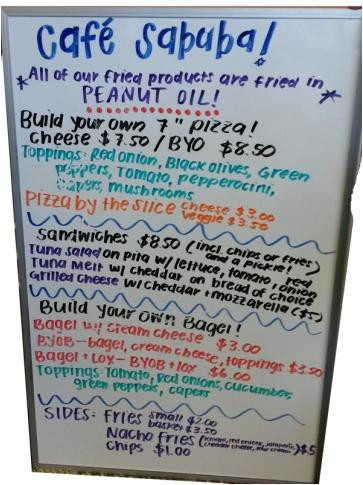 Café Sababa!
*All of our fried products are fried in*
PEANUT OIL!
Build your own 7" pizza!
cheese $7.50 / BYO $8.50
Toppings: Red onion, Black olives, Green
peppers, Tomato, pepperocini,
capers, mushrooms
Pizza by the slice cheese $3.00
veggie $3.50
Sandwiches $8.50 (incl. chips or fries)
and a pickle!
Tuna salad on pita w/ lettuce, tomato, red onion
Tuna Melt w/ cheddar on bread of choice
Grilled cheese w/ cheddar + mozzarella ($5)
Build your own Bagel!
Bagel w/ cream cheese $3.00
BYOB - bagel, cream cheese, toppings $3.50
Bagel + lox - BYOB + lox $6.00
Toppings: Tomato, Red onions, cucumber,
green peppers, capers
SIDES: Fries small $2.00
basket $3.50
Nacho fries (tomato, red onions, jalapeño,
cheddar cheese, sour cream) $5
chips $1.00